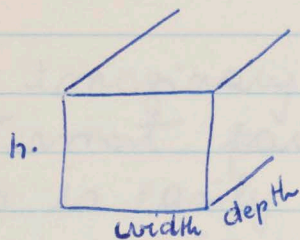 h.
width depth